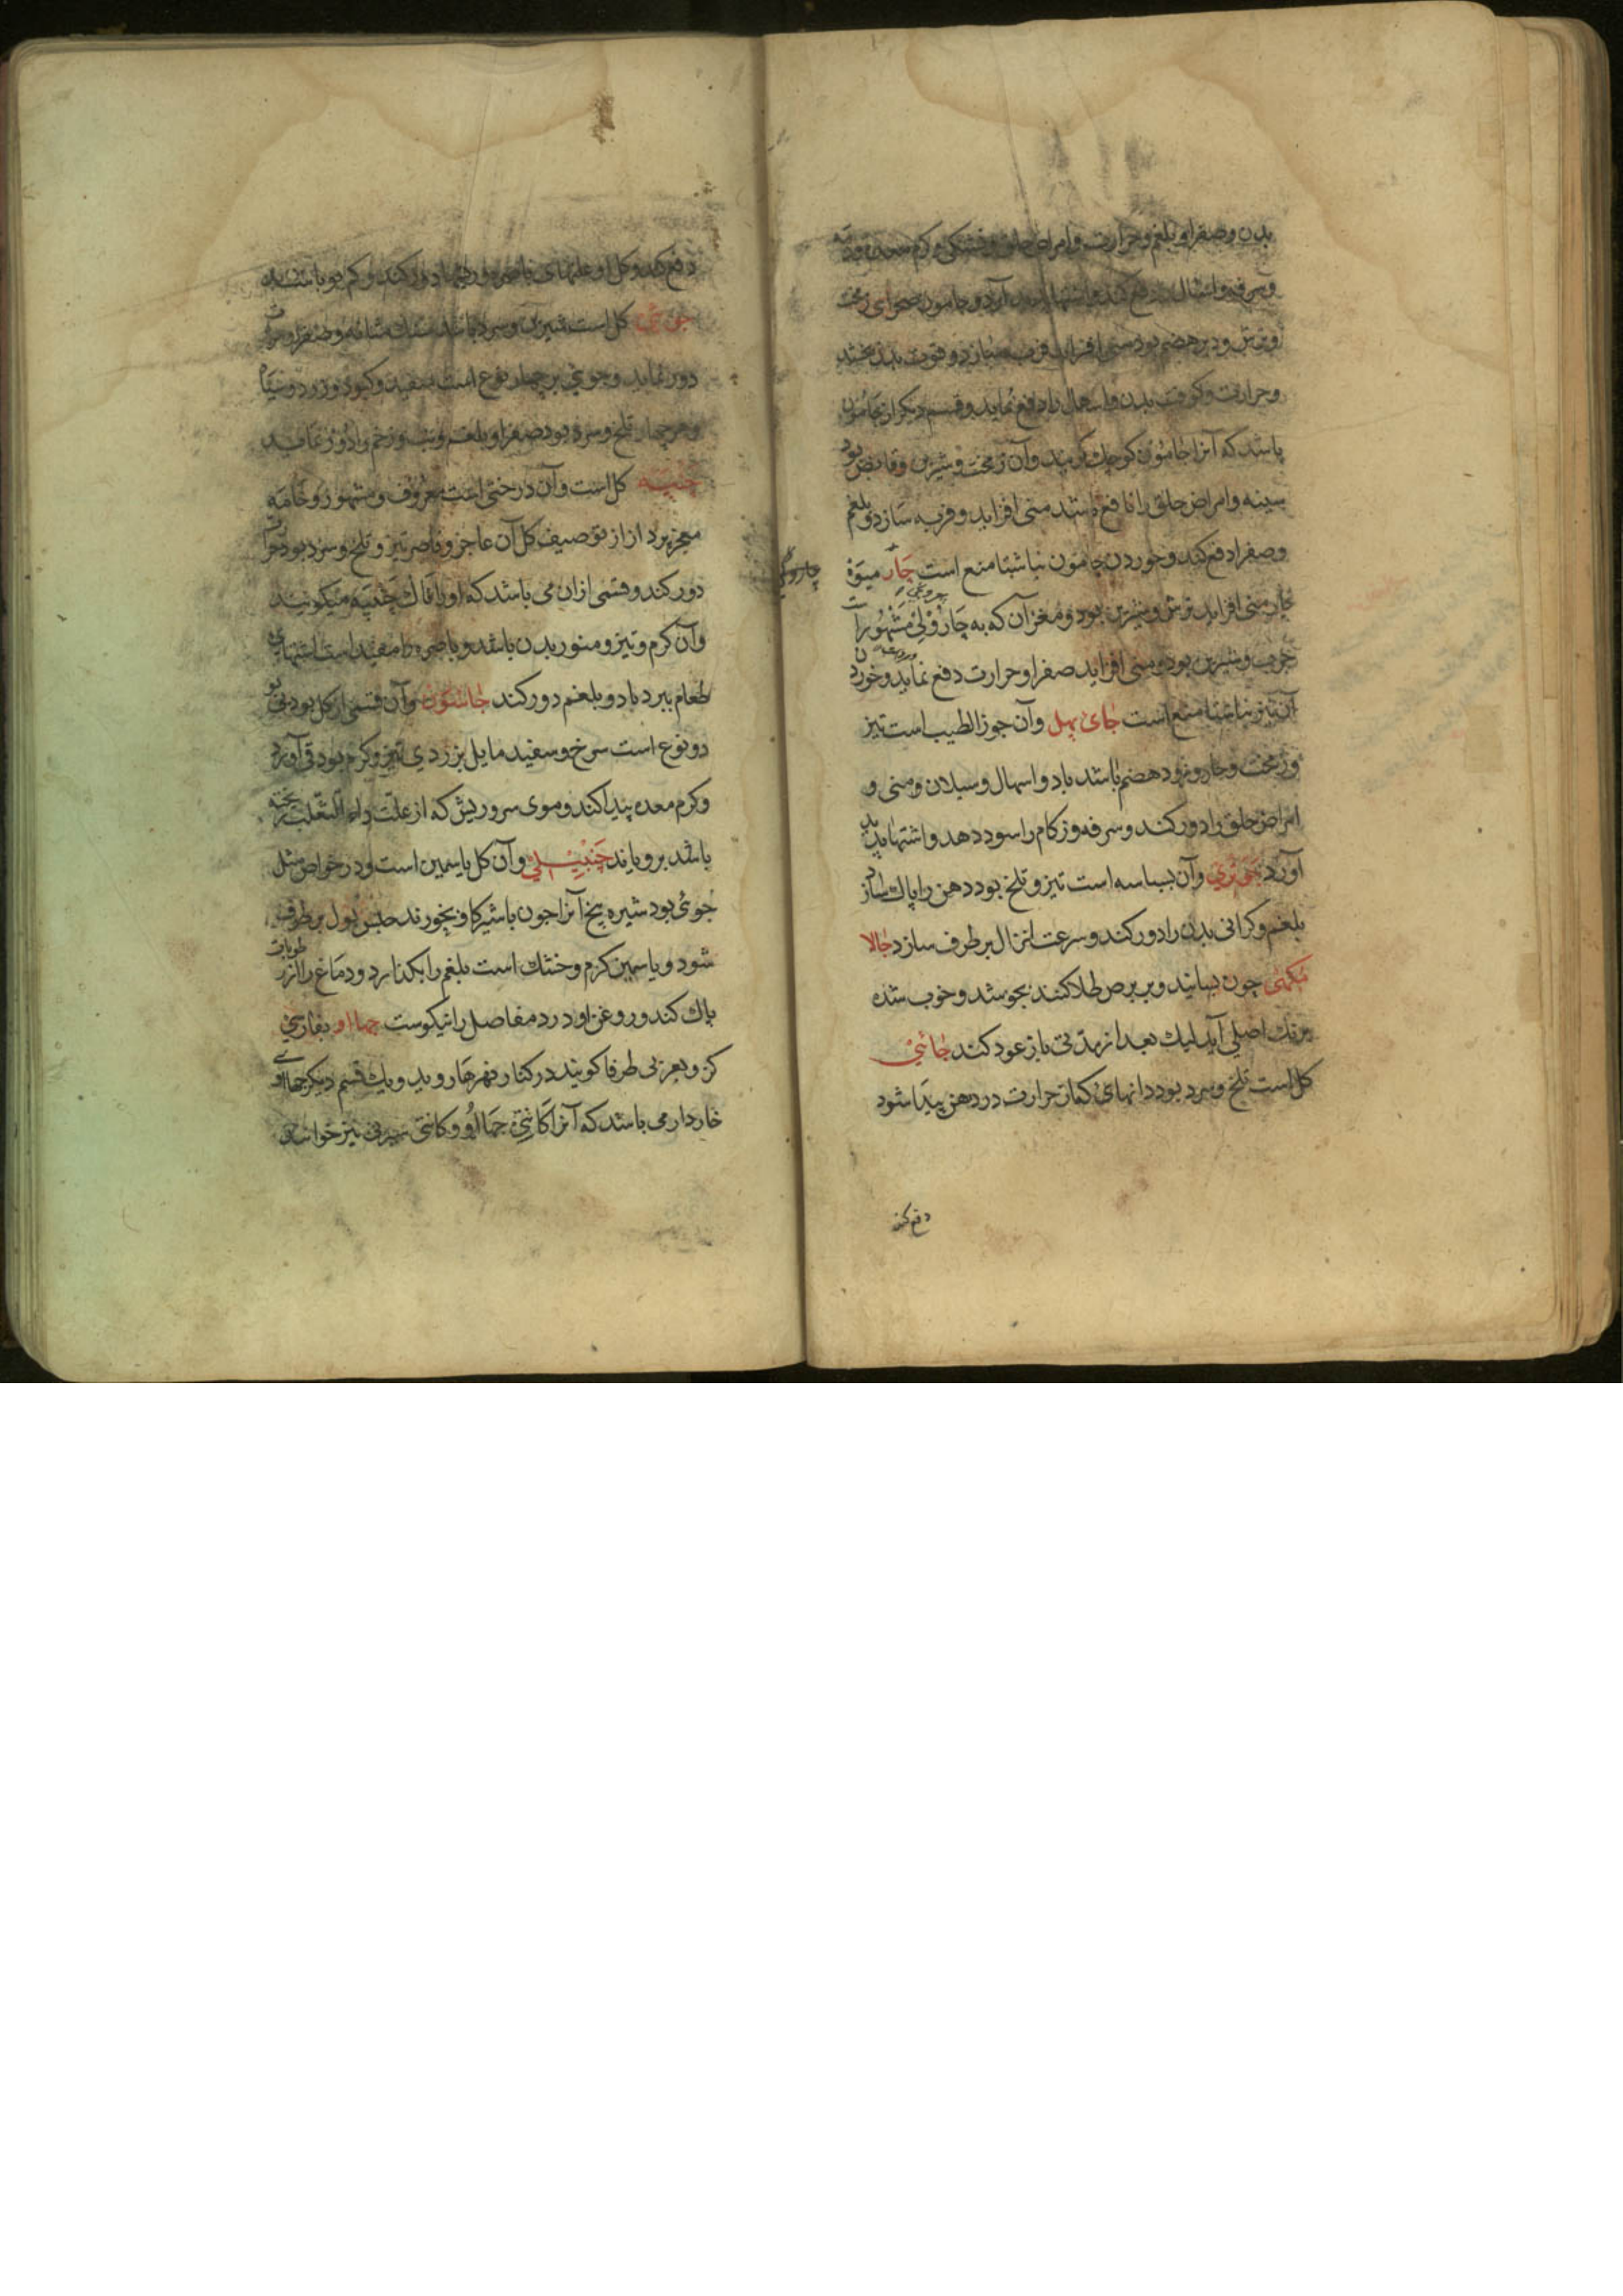 بدن و صفرا و بلغم و حرارت و امراض حلق و خشکی و کرم معده و دمه
و سرفه و اسهال دفع کند و اشتها آرد و جامون صحرای زمخت
و ترش و دیر هضم بود منی افزاید فربه سازد و قوت بدن بخشد
و حرارت و کوفت بدن و اسهال را دفع نماید و قسم دیگر از جامون
باشد که آنرا جامون کوچك گویند و آن زمخت و شیرین و قابض بود
سینه و امراض حلق را نافع باشد منی افزاید و فربه سازد و بلغم
و صفرا دفع کند و خوردن جامون نباشتا منع است چار میوهٔ
چار منی افزاید ترش و شیرین بود و مغز آن که به چارولی مشهور است
چرب و شیرین بود و منی افزاید صفرا و حرارت دفع نماید و خوردن
آن نیز نباشتا منع است جای پهل و آن جوز الطیب است تیز
و زمخت و حار و زود هضم باشد باد و اسهال و سیلان و منی و
امراض حلق را دور کند و سرفه و زکام را سود دهد و اشتها پدید
آورد جوتری و آن بسباسه است تیز و تلخ بود دهن را پاك سازد
بلغم و کرانی بدن را دور کند و سرعت انزال برطرف سازد جالا
مکهی چون بسایند و بر برص طلا کنند بجوشد و خوب شده
برنك اصلی آید لیك بعد از مدتی باز عود کند جائی
کل است تلخ و سرد بود دانهای که از حرارت در دهن پیدا شود
دفع کند
چارولی
دفع کند و کل او علتهای باصره و
جوئی کل است شیرین و سرد باشد سنك مثانه و صفرا و
دور نماید و جوئی بر چهار نوع است سفید و کبود و زرد و
و هر چهار تلخ و سرد بود صفرا و بلغم و تب و زخم را دور نماید
چنپه کل است و آن درختی است معروف و مشهور و خامه
معجز پرداز از توصیف کل آن عاجز و قاصر تیز و تلخ و سرد بود
دور کند و قسمی از ان می باشد که او را ناك چنپه میکویند
و آن کرم و تیز و منور بدن باشد و باصره را مفید است اشتهای
طعام ببرد باد و بلغم دور کند جاسون و آن قسمی از کل بود بر
دو نوع است سرخ و سفید مایل بزردی تیز و کرم بود قی آورد
و کرم معده پیدا کند و موی سر و ریش که از علت داء الثعلب ریخته
باشد برویاند چنبیلی و آن کل یاسمین است و در خواص مثل
جوئی بود شیره بیخ آنرا چون باشیر کاو بخورند حبس بول برطرف
شود و یاسمین کرم و خشك است بلغم را بکذارد و دماغ را از رطوبات
پاك کند و روغن او درد مفاصل را نیکوست جهااو بفارسی
کز و بعربی طرفا کویند در کنار نهرها روید و یك قسم دیکر جهااو
خاردار می باشد که آنرا کانتی جهااو و کانتی نیز خوانند